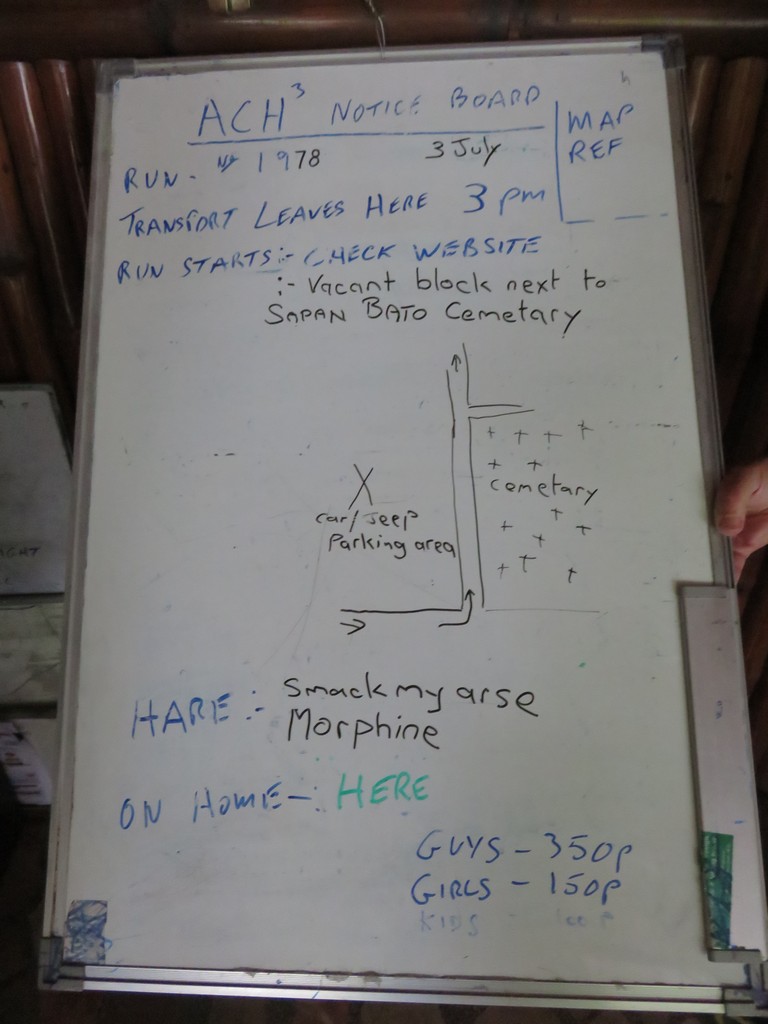 ACH³ NOTICE BOARD
MAP
REF
RUN - Nº 1978 3 July
TRANSPORT LEAVES HERE 3 pm
RUN STARTS :- CHECK WEBSITE
:- Vacant block next to
SAPAN BATO Cemetary
cemetary
X
car/Jeep
Parking area
HARE :- Smack my arse
Morphine
ON HOME - : HERE
GUYS - 350p
GIRLS - 150p
KIDS - 100p